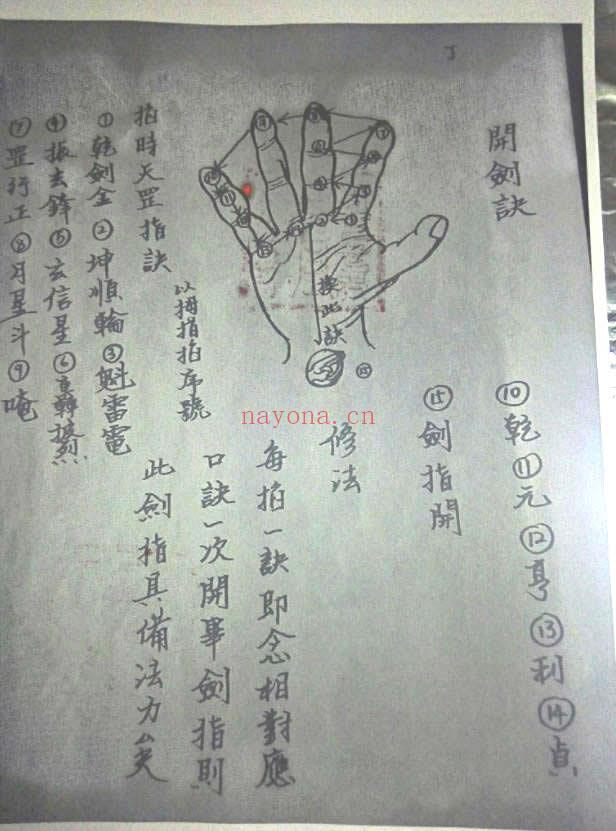 開劍訣
掐時天罡指訣
以拇指掐序號
①乾劍金②坤順輪③魁雷電
④振去鋒⑤玄信星⑥轟
⑦罡行正⑧月星斗⑨唵
⑩乾⑪元⑫亨⑬利⑭貞
⑮劍指開
修法
每掐一訣即念相對應
口訣一次開畢劍指則
此劍指具備法力矣
換此訣
⑮
nayona.cn